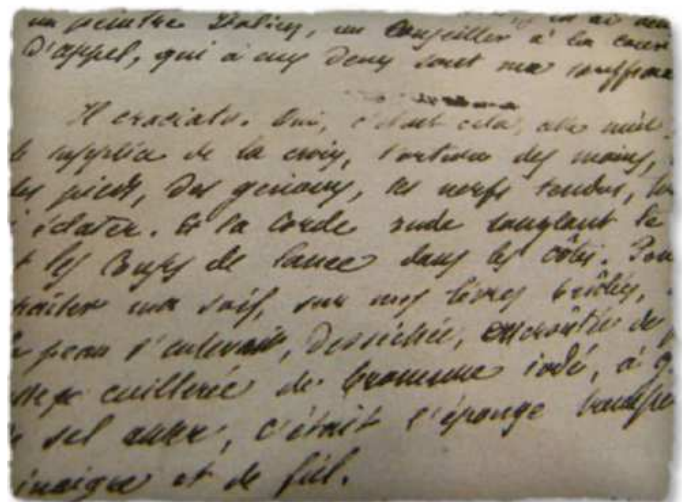 un peintre Italien, un Conseiller à la cour
D'appel, qui à eux Deux sont ma souffran
Il crociato. Oui, c'était cela, cette nuit.
supplice de la croix, torsion des mains,
les pieds, Des genoux, les nerfs tendus,
éclater. Et la Corde rude sanglant le
les Coups de lance dans les côtes. Pour
ma soif, sur mes lèvres brûlées,
peau s'enlevait, Desséchée, encroûtée de
cuillerée de bromure iodé, à g
sel amer, c'était l'éponge trempée
inaigre et de fiel.